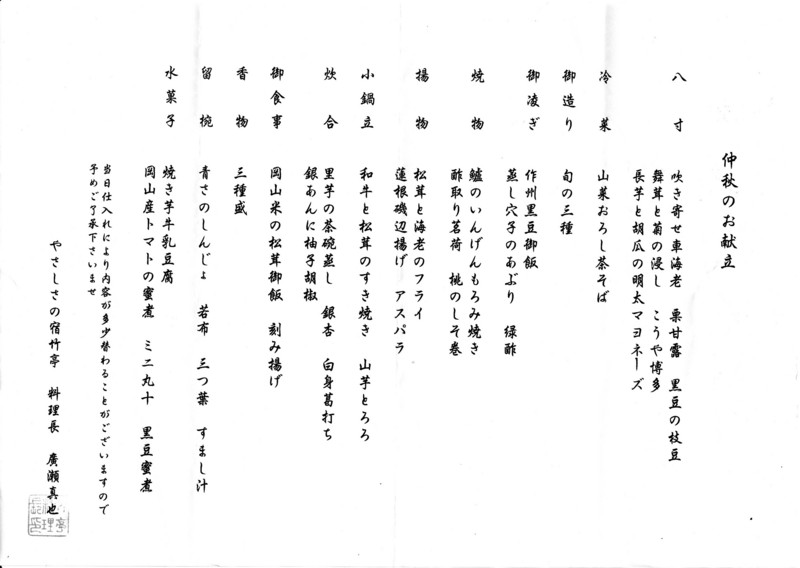 仲秋のお献立
八寸　吹き寄せ車海老　栗甘露　黒豆の枝豆
舞茸と菊の浸し　こうや博多
長芋と胡瓜の明太マヨネーズ
冷菜　山菜おろし茶そば
御造り　旬の三種
御凌ぎ　作州黒豆御飯
蒸し穴子のあぶり　緑酢
焼物　鱸のいんげんもろみ焼き
酢取り茗荷　桃のしそ巻
揚物　松茸と海老のフライ
蓮根磯辺揚げ　アスパラ
小鍋立　和牛と松茸のすき焼き　山芋とろろ
炊合　里芋の茶碗蒸し　銀杏　白身葛打ち
銀あんに柚子胡椒
御食事　岡山米の松茸御飯　刻み揚げ
香物　三種盛
留椀　青さのしんじょ　若布　三つ葉　すまし汁
水菓子　焼き芋牛乳豆腐
岡山産トマトの蜜煮　ミニ九十　黒豆蜜煮
当日仕入れにより内容が多少替わることがございますので
予めご了承下さいませ
やさしさの宿竹亭　料理長　廣瀬真也